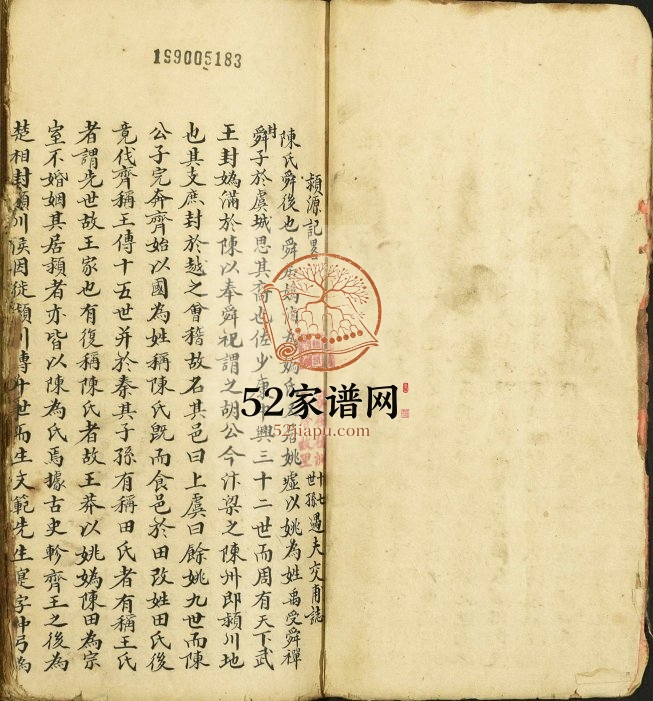 199005183
潁源記畧
十七世孫遇夫交甫誌
陳氏舜後也舜居媯汭為媯氏生諸姚墟以姚為姓禹受舜禪
封舜子於虞城思其裔也佐少康中興三十二世而周有天下武
王封媯滿於陳以奉舜祀謂之胡公今汴梁之陳州即潁川地
也其支庶封於越之會稽故名其邑曰上虞曰餘姚九世而陳
公子完奔齊始以國為姓稱陳氏既而食邑於田改姓田氏後
竟伐齊稱王傳十五世并於秦其子孫有稱田氏者有稱王氏
者謂先世故王家也有復稱陳氏者故王莽以姚媯陳田為宗
室不婚姻其居潁者亦皆以陳為氏焉據古史軫齊王之後為
楚相封潁川侯因徙潁川傳十世而生文範先生寔字仲弓為
52家谱网
52jiapu.com